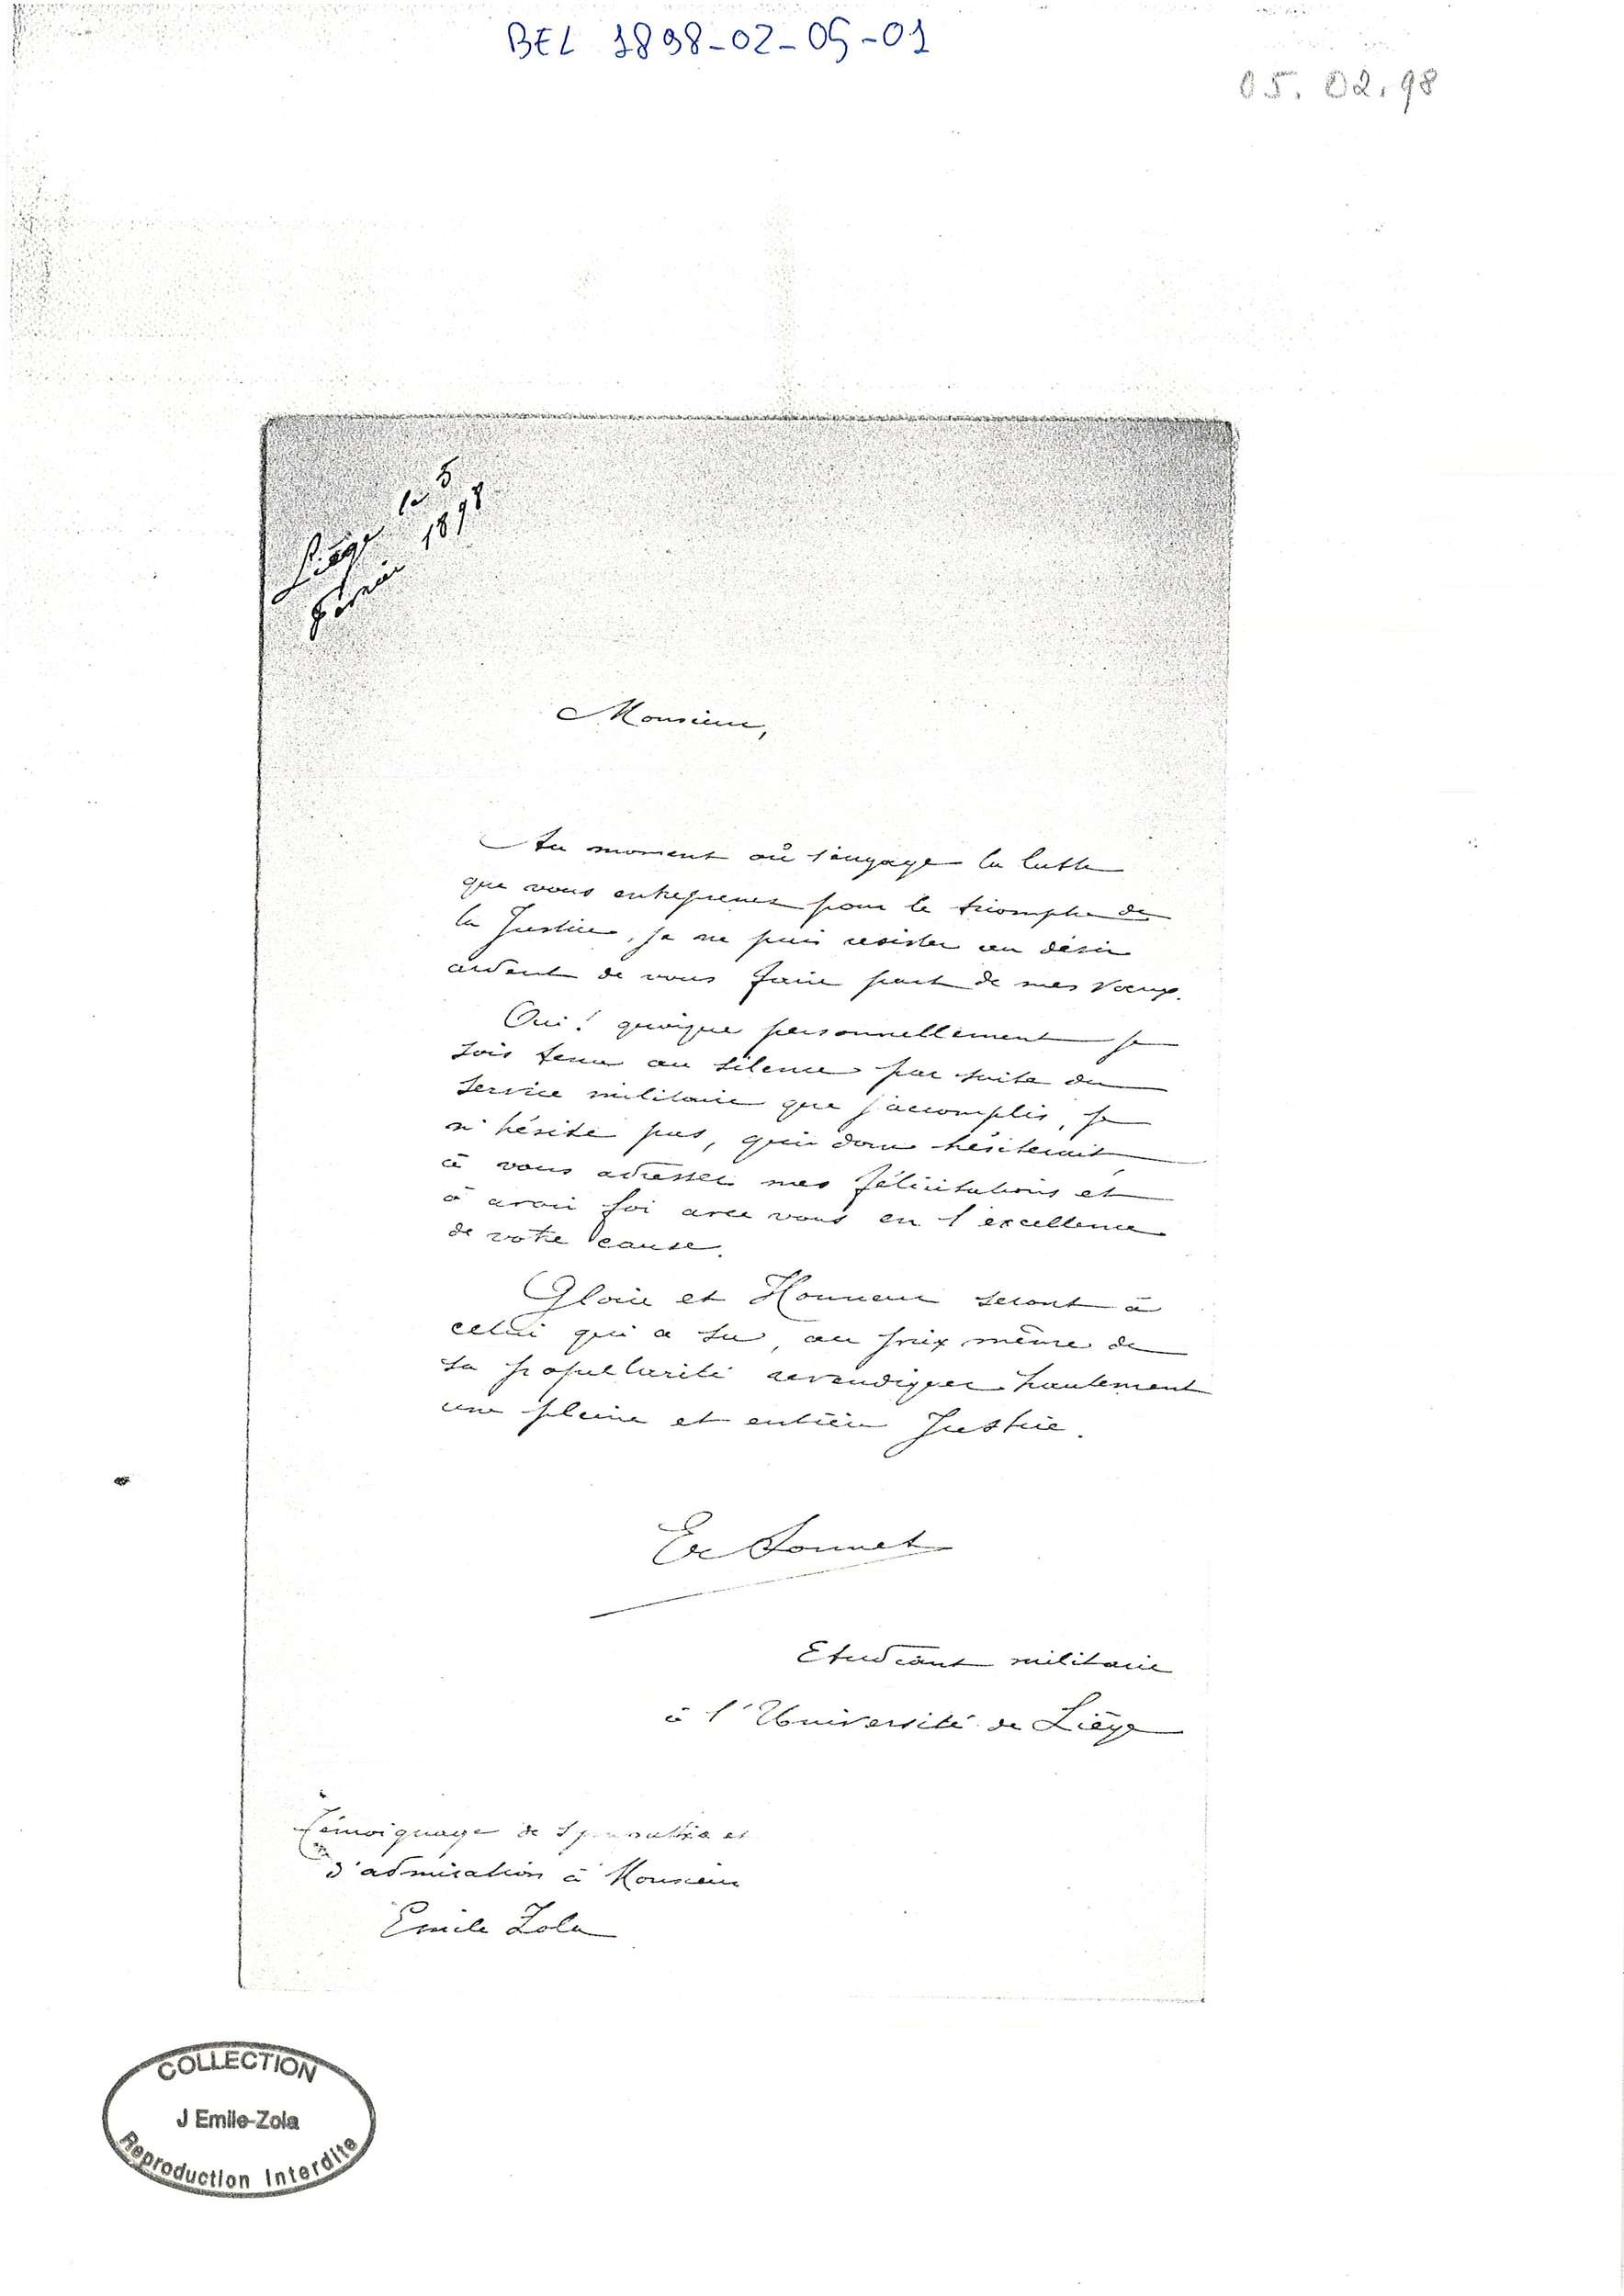 BEL 1898-02-05-01
05.02.98
Liège le 5
Février 1898
Monsieur,
Au moment où s'engage la lutte
que vous entreprenez pour le triomphe de
la Justice, je ne puis résister au désir
ardent de vous faire part de mes vœux.
Oui! quoique personnellement je
sois tenu au silence par suite du
service militaire que j'accomplis, je
n'hésite pas, qui donc hésiterait,
à vous adresser mes félicitations et
à avoir foi avec vous en l'excellence
de votre cause.
Gloire et Honneur seront à
celui qui a su, au prix même de
sa popullarité revendiquer hautement
une pleine et entière Justice.
Sonnet
Etudiant militaire
à l'Université de Liège
Témoignage de sympathie et
d'admiration à Monsieur
Emile Zola
COLLECTION
J Emile-Zola
Reproduction Interdite